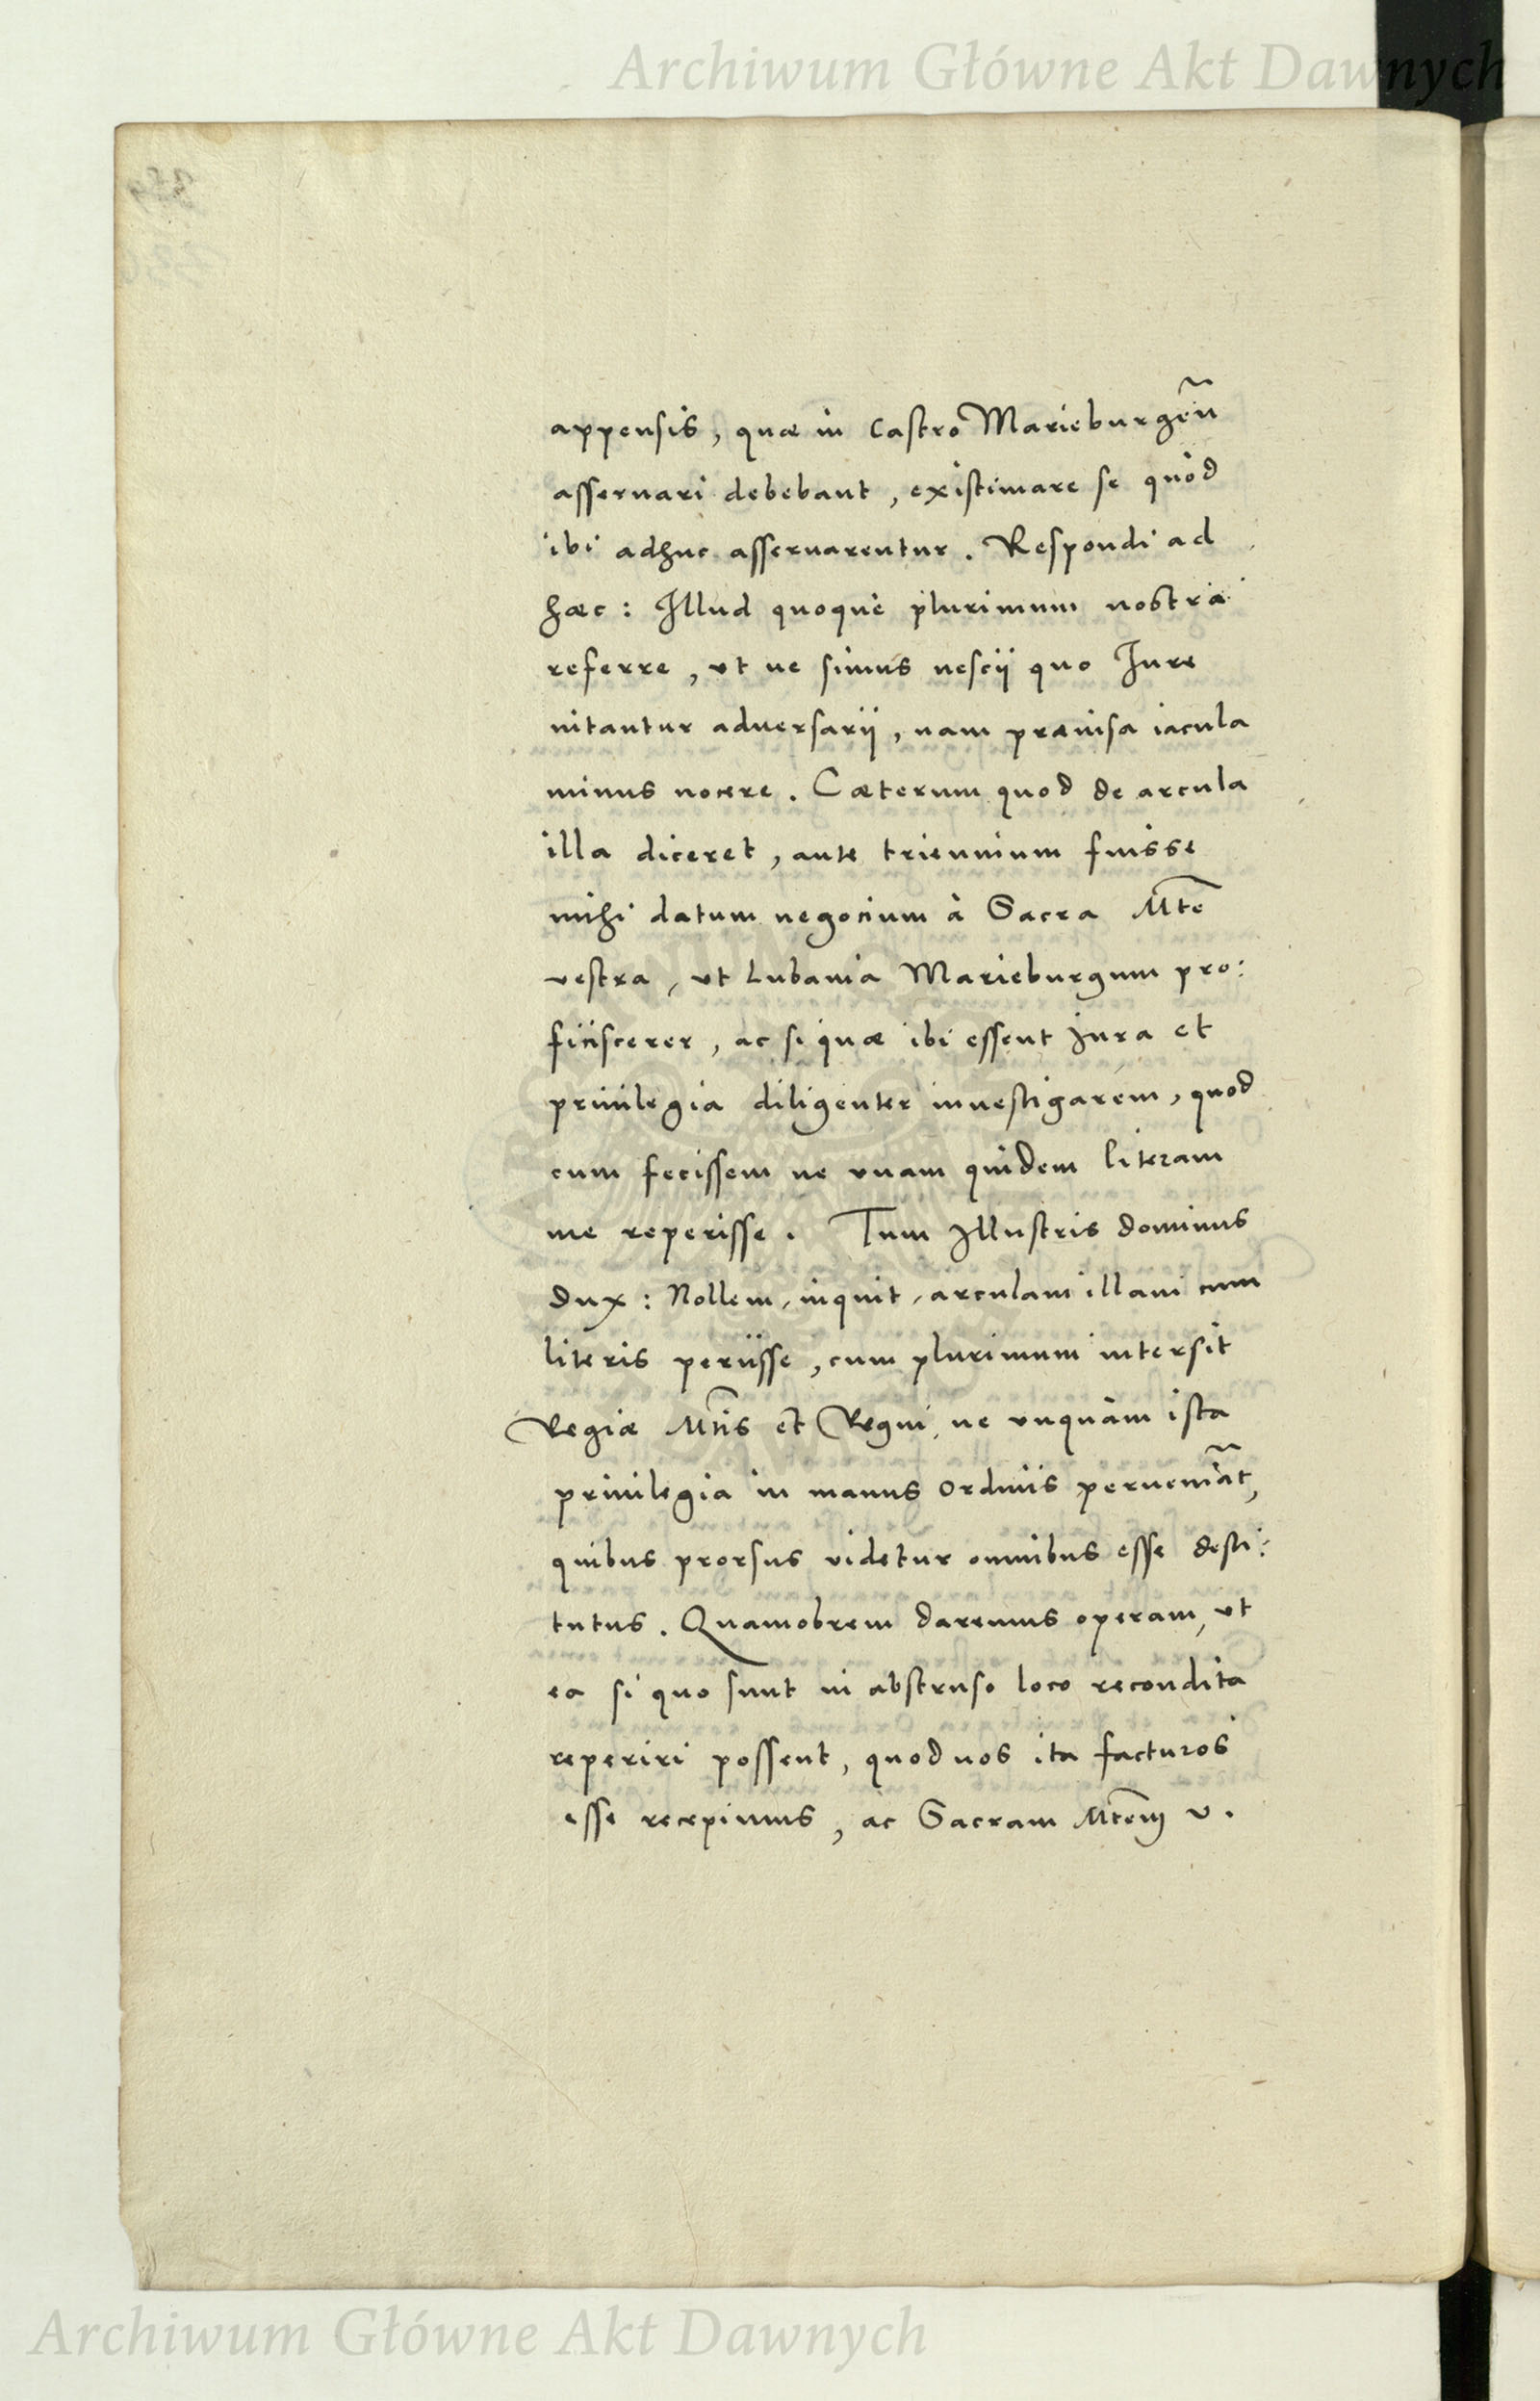 Archiwum Główne Akt Dawnych
appensis, quæ in Castro Marieburgen̄
asseruari debebant, existimare se quòd
ibi adhuc asseruarentur. Respondi ad
hæc: Illud quoque plurimum nostra
referre, vt ne simus nescij quo Iure
nitantur aduersarij, nam præuisa iacula
minus nocere. Cæterum quod de arcula
illa diceret, ante triennium fuisse
mihi datum negocium à Sacra Mte
vestra, vt Lubauia Marieburgum pro:
ficiscerer, ac si quæ ibi essent Jura et
priuilegia diligenter inuestigarem, quod
cum fecissem ne vnam quidem literam
me reperisse. Tum Illustris dominus
Dux: Nollem, inquit, arculam illam cum
literis periisse, cum plurimum intersit
Regiæ Mtis et Regni, ne vnquam ista
priuilegia in manus Ordinis perueniāt,
quibus prorsus videtur omnibus esse desti:
tutus. Quamobrem daremus operam, vt
ea si quo sunt in abstruso loco recondita
reperiri possent, quod nos ita facturos
esse recepimus, ac Sacram Mtem v.
Archiwum Główne Akt Dawnych